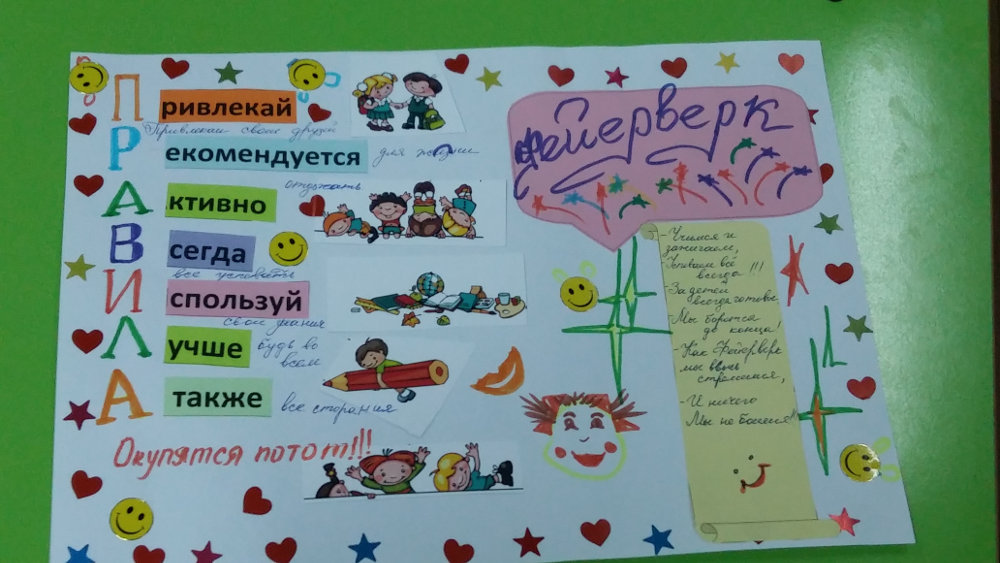 Привлекай
Привлекай своих друзей
Рекомендуется для жизни
отдыхать
Активно
Всегда
все успевать
Используй
свои знания
Лучше будь во
всем
А также все старания
Окупятся потот!!!
Фейерверк
- Учимся и
зажигаем,
Успеваем всё
всегда !!!
- За детей
всегда готовы
- Мы боремся
до конца!
- Как Фейерверк
мы ввысь
стремимся,
- И ничего
Мы не боимся!!!